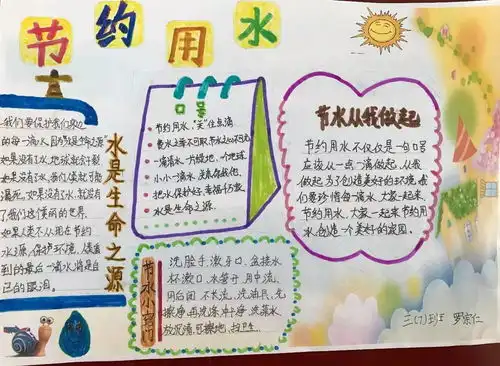 节约用水
我们要保护我们身边
的每一滴水,因为水是生命之源"
如果没有了水,地球就会干裂
如果没有了水,我们人类就可能
灭死,如果没有了水,就没有
了我们这个美丽的世界,
如果人类不从现在节约
水资源,保护环境,
到的最后一滴水将是自
己的眼泪。
水是生命之源
口号
节约用水,"关"住点滴
费水之源不可取
一滴清水,一片绿地,一个地球
小小一滴水
把水保护好,幸福千万家
水是生命之源
节水小窍门
洗脸手,漱牙口,盆接水
杯漱口,水管开,用中流,
用后闭,不长流,洗油具,先
擦净,再洗涤,冲干净,洗菜水
放沉清,可擦地,扫卫生
节水从我做起
节约用水不仅仅是一句口号
应该从一点一滴做起,从我
做起,为了创造美好的环境,我
们要珍惜每一滴水,大家一起来
节约用水,大家一起来节约用
水,创造一个美好的家园。
三(7)班 罗宗仁